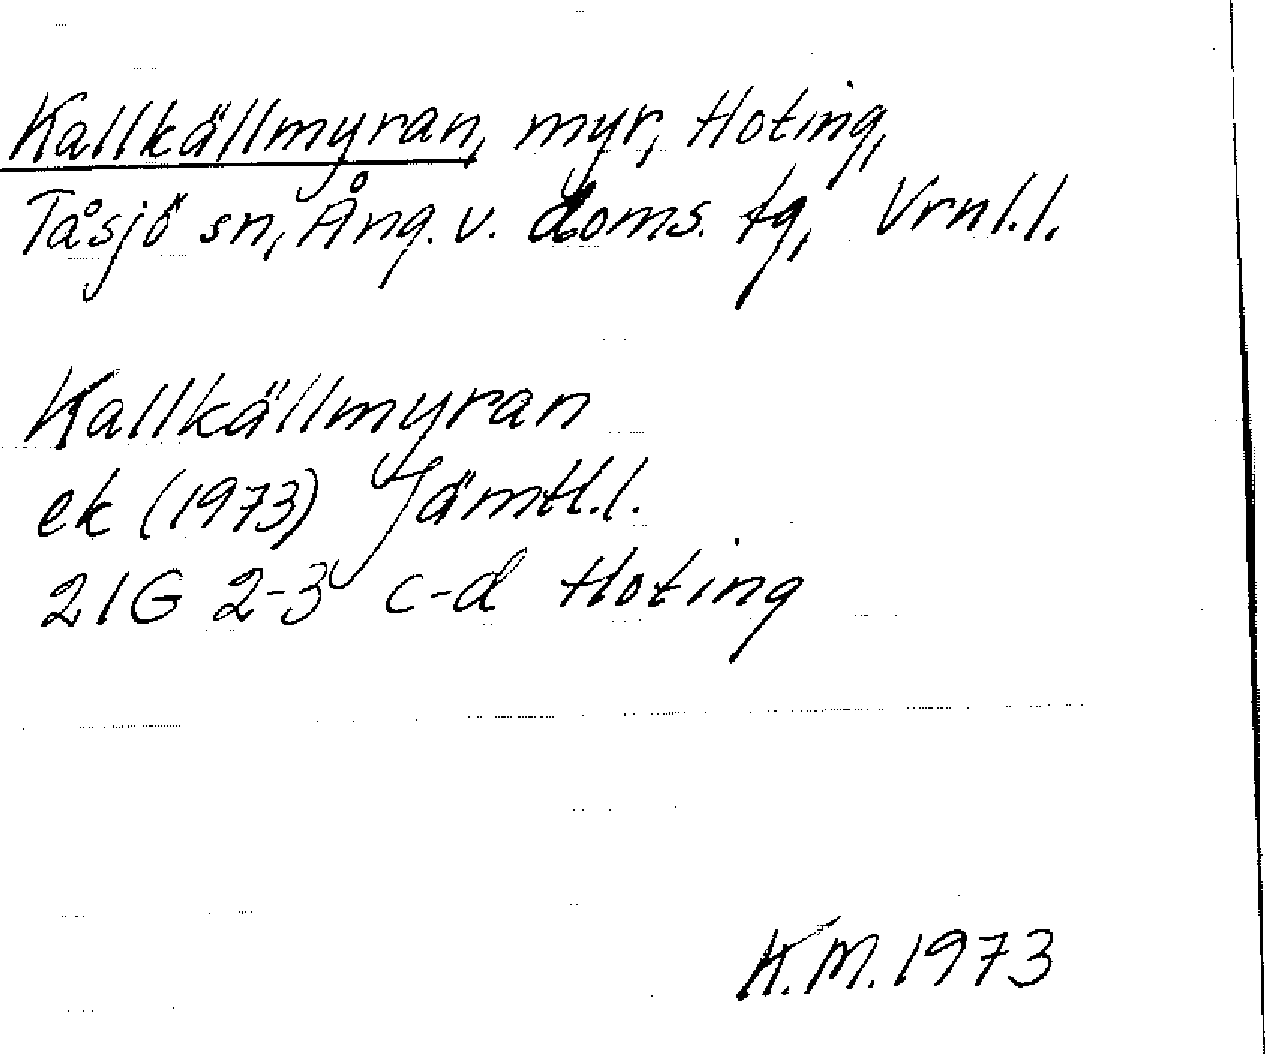 Kallkällmyran, myr, Hoting,
Tåsjö sn, Ång. v. doms. tg, Vrnl.l.
Kallkällmyran
ek (1973) Jämtl.l.
21G 2-3 c-d Hoting
K.M. 1973